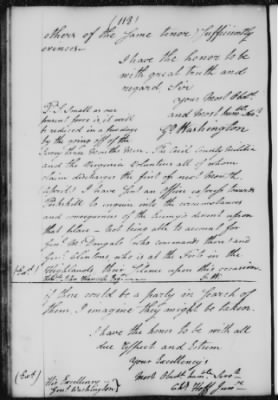 (118)
others of the same tenor sufficiently
evinces.
I have the honor to be
with great truth and
regard Sir
your Most Obedt
and most humble Servt
Go Washington
P.S. Small as our
present force is, it will
be reduced in a few days
by the going off of the
men. The
and the Virginia Volunteers all of whom
claim discharges the first of next Month.
I have sent an Officer express towards
Peekskill to enquire into the circumstances
and consequences of the Enemy's descent upon
that place. Not being able to account for
Genl. McDougals who commands there; and
Genl. Clintons who is at the Forts in the
Highlands their silence upon this occasion.
if there could be a party in search of
them, I imagine they might be taken.
I have the honor to be with all
due respect and Esteem
Your Excellency's
Most Obedt humle Servt
His Excellency
Genl. Washington